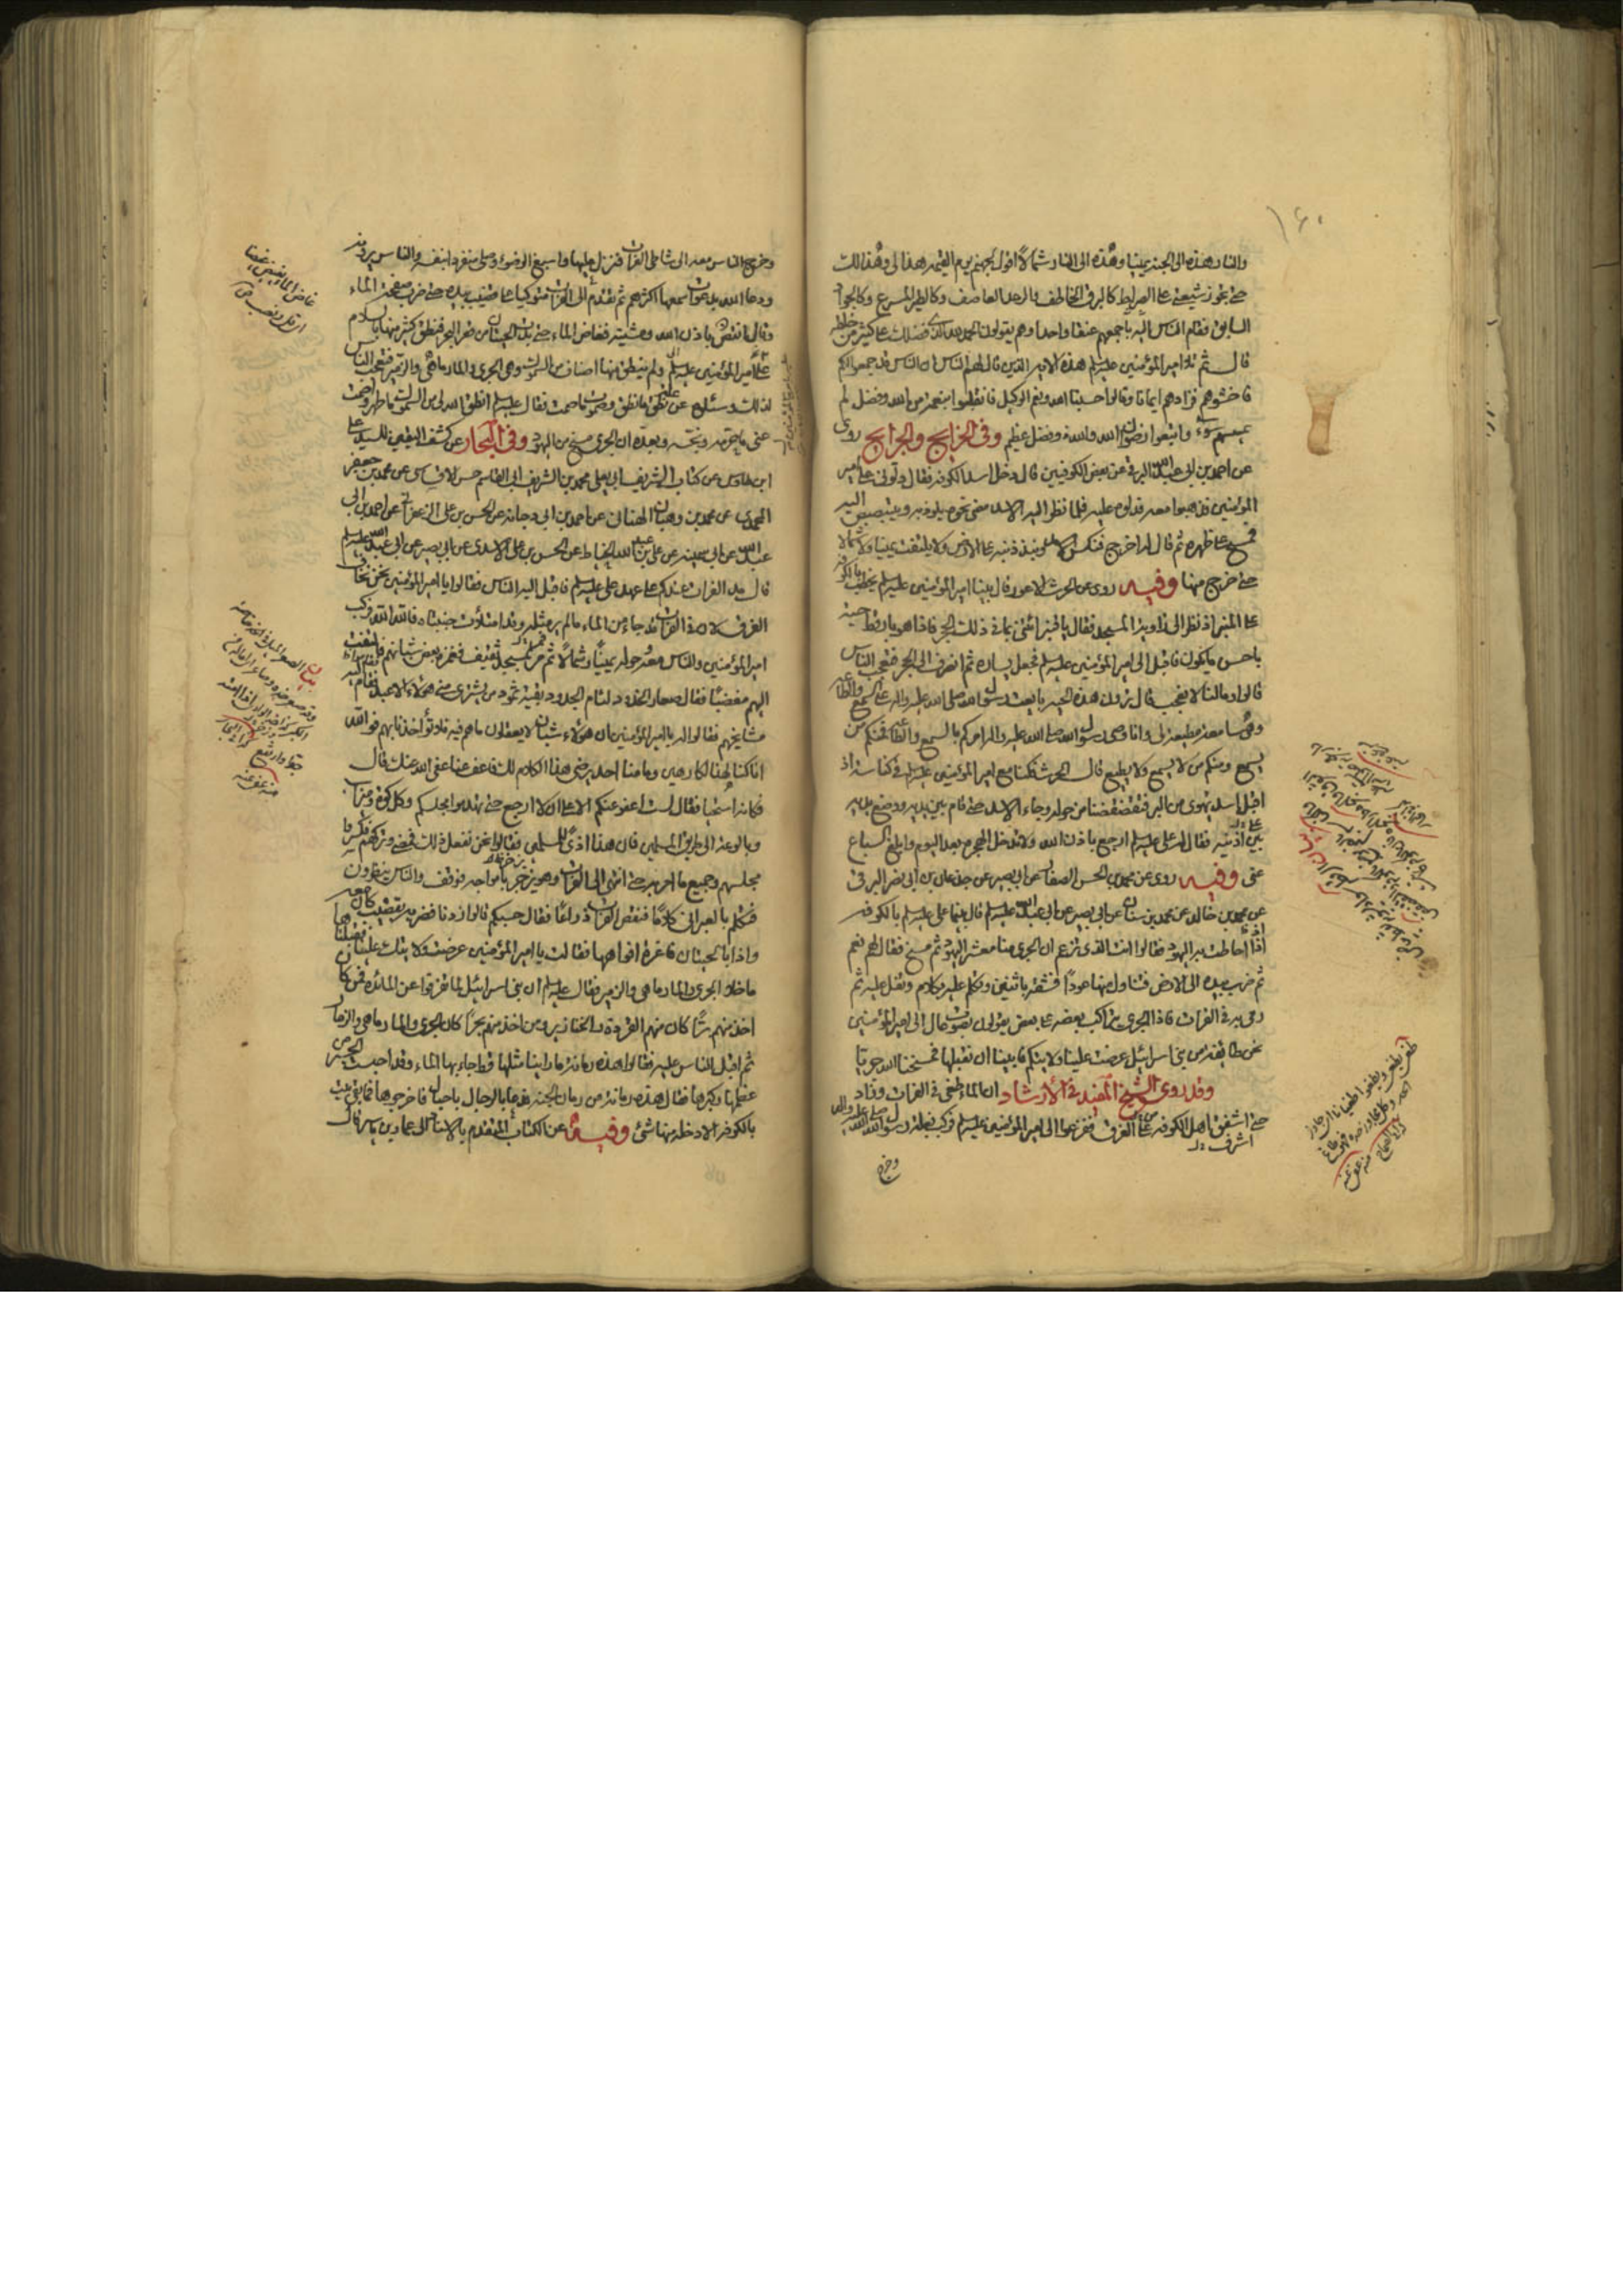 ١٦٠
والنار هذه الى الجنة يمينا وهذه الى النار شمالا اقول لجهنم يوم القيمة هذا لى وهذا لك
حتى تجوز شيعتى على الصراط كالبرق الخاطف والرعد العاصف وكالطير المسرع وكالجواد
السابق فقام الناس اليه باجمعهم عنقا واحدا وهم يقولون الحمد لله الذى فضلك على كثير من خلقه
قال ثم تلا امير المؤمنين عليه السلم هذه الاية الذين قال لهم الناس ان الناس قد جمعوا لكم
فاخشوهم فزادهم ايمانا وقالوا حسبنا الله ونعم الوكيل فانقلبوا بنعمة من الله وفضل لم
يمسسهم سوء واتبعوا رضوان الله والله ذو فضل عظيم وفى الخرايج والجرايح روى
عن احمد بن ابى عبد الله البرقى عن بعض الكوفيين قال دخل اسد الكوفة فقال دلونى على امير
المؤمنين فذهبوا معه فدلوه عليه فلما نظر اليه الاسد مضى نحوه يلوذ به ويتبصبص اليه
فمسح على ظهره ثم قال له اخرج فنكس الاسد ونبذ ذنبه على الارض ولا يلتفت يمينا ولا شمالا
حتى خرج منها وفيه روى عن الحرث الاعور قال بينا امير المؤمنين عليه السلم يخطب بالكوفة
على المنبر اذ نظر الى زاوية المسجد فقال يا قنبر ائتنى بما فى ذلك الجحر فاذا هو بارقط حية
باحسن ما يكون فاقبل الى امير المؤمنين عليه السلم فجعل يساره ثم انصرف الى الجحر فتعجب الناس
قالوا وما لنا لا نعجب قال ترون هذه الحية بايعت رسول الله صلى الله عليه واله على السمع والطاعة
وهى سامعة مطيعة لى وانا وصى رسول الله صلى الله عليه واله امركم بالسمع والطاعة فمنكم من
يسمع ومنكم من لا يسمع ولا يطيع قال الحرث فكنا مع امير المؤمنين عليه السلم فى كناسة اذ
اقبل اسد يهوى من البر فتقضقضنا من حوله وجاء الاسد حتى قام بين يديه ووضع يديه
بين اذنيه فقال له على عليه السلم ارجع باذن الله ولا تدخل الهجرة بعد اليوم وابلغ السباع
عنى وفيه روى عن محمد بن الحسن الصفار عن ابى بصير عن جذعان بن ابى نصر البرقى
عن محمد بن خالد عن محمد بن سنان عن ابى بصير عن ابى عبد الله عليه السلم قال بينما على عليه السلم بالكوفة
اذ احاطت به اليهود فقالوا انت الذى تزعم ان الجرى منا معشر اليهود ثم مسخ فقال لهم نعم
ثم ضرب بيده الى الارض فتناول منها عودا فشقه باثنين وتكلم عليه بكلام وتفل عليه ثم
رمى به فى الفرات فاذا الجرى يتراكب بعضه على بعض يقولون بصوت عال الى امير المؤمنين
نحن طايفة من بنى اسرائيل عرضت علينا ولايتكم فابينا ان نقبلها فمسخنا الله جريا
وقد روى الشيخ المفيد فى الارشاد ان الماء طغى فى الفرات وزاد
حتى اشفق اهل الكوفة من الغرق ففزعوا الى امير المؤمنين عليه السلم فركب بغلة رسول الله صلى الله عليه واله
وخرج
وخرج الناس معه الى شاطى الفرات فنزل عليها واسبغ الوضوء وصلى منفردا بنفسه والناس يرونه
ودعا الله بدعوات سمعها اكثرهم ثم تقدم الى الفرات متوكيا على قضيب بيده حتى ضرب صفحة الماء
وقال انقص باذن الله ومشيته فغاض الماء حتى بدت الحيتان من قعر البحر فنطق كثير منها بالسلام
على امير المؤمنين عليه السلم ولم ينطق منها اصناف من السموك وهى الجرى والمارماهى والزمير فتعجب الناس
لذلك وسئلوه عن علة نطق ما نطق وصموت ما صمت فقال عليه السلم انطق الله لى من السموك ما طهر واصمت
عنى ما حرمه ونجسه وبعده ان الجرى مسخ من اليهود وفى البحار عن كشف اليقين للسيد على
ابن طاوس عن كتاب الشريف ابى يعلى محمد بن الشريف ابى القاسم حسن الاقساسى عن محمد بن جعفر
المحمدى عن محمد بن وهبان الهنائى عن احمد بن ابى دجانة عن الحسن بن على الزعفرانى عن احمد بن ابى
عبد الله عن ابى سمينة عن على بن عبد الله الخياط عن الحسن بن على الاسدى عن ابى بصير عن ابى عبد الله عليه السلم
قال مد الفرات عندكم على عهد على عليه السلم فاقبل اليه الناس فقالوا يا امير المؤمنين نحن نخاف
الغرق لان فى الفرات قد جاء من الماء ما لم ير مثله وقد امتلأت جنبتاه فالله الله فركب
امير المؤمنين والناس معه وحوله يمينا وشمالا ثم مر بمسجد ثقيف فغمزه بعض شبانهم فالتفت
اليهم مغضبا فقال صعار الخدود لئام الجدود بقية ثمود من يشترى منى هؤلاء الاعبد فقام اليه
مشايخهم فقالوا له يا امير المؤمنين ان هؤلاء شبان لا يعقلون ما هم فيه فلا تؤاخذنا بهم فوالله
انا كنا لهذا لكارهين وما منا احد يرضى هذا الكلام لك فاعف عنا عفى الله عنك قال
فكانه استحيا فقال لست اعفو عنكم الا على ان لا ارجع حتى تهدموا مجلسكم وكل كوة وميزاب
وبالوعة الى طريق المسلمين فان هذا اذى للمسلمين فقالوا نحن نفعل ذلك فمضى وتركهم فكسروا
مجلسهم وجميع ما امر به حتى انتهى الى الفرات وهو يزخر بامواجه فوقف والناس ينظرون
فتكلم بالعبرانى كلاما فنقص الفرات ذراعا فقال حسبكم قالوا زدنا فضربه بقضيب كان معه
واذا بالحيتان فاغرة افواهها فقالت يا امير المؤمنين عرضت ولايتك علينا فقبلناها
ما خلا الجرى والمارماهى والزمير فقال عليه السلم ان بنى اسرائيل لما تفرقوا عن المائدة فمن كان
اخذ منهم برا كان منهم القردة والخنازير ومن اخذ منهم بحرا كان الجرى والمارماهى والزمار
ثم اقبل الناس عليه فقالوا هذه رمانة ما راينا مثلها قط جاء بها الماء وقد احبست الجسر من
عظمها وكبرها فقال هذه رمانة من رمان الجنة فدعا بالرجال باحبال فاخرجوها فما بقى بيت
بالكوفة الا دخله منها شئ وفيه عن الكتاب المتقدم بالاسناد الى عمار بن ياسر قال